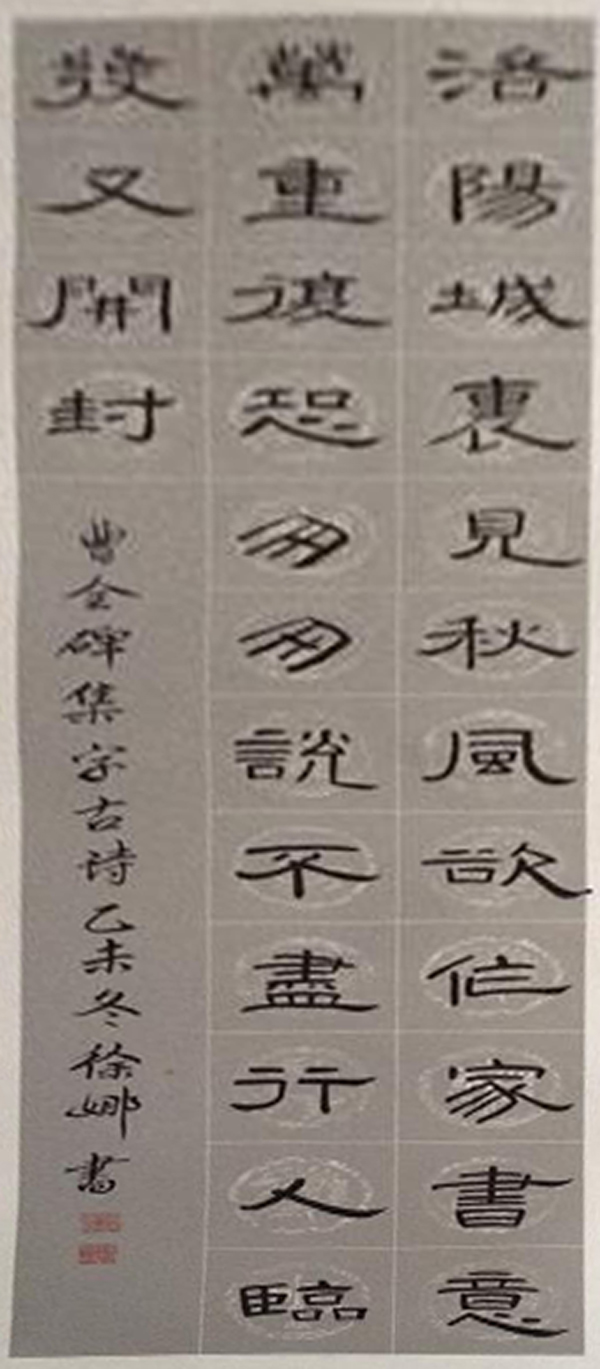 洛陽城裏見秋風欲作家書意
萬重復恐匆匆説不盡行人臨
發又開封
曹全碑集字古诗乙未冬徐娜書